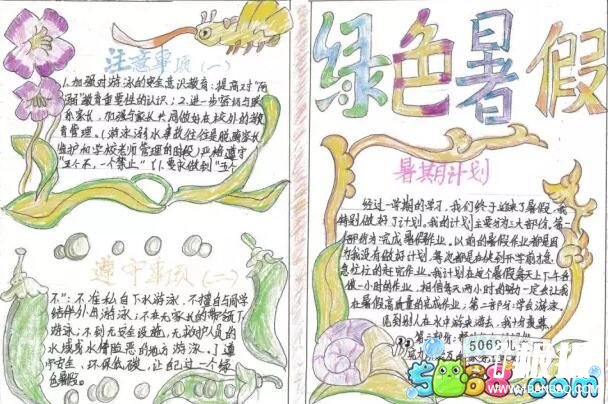 注意事项(一)
1.加强对游泳的安全意识教育:提高对“防
溺”教育重要性的认识;2.进一步密切与联
系家长,加强与家长共同做好在校外的教
育管理。(游泳溺水事故往往是脱离家长
监护和学校老师管理的时段)严格遵守
“五个不,一个禁止”(1.要求做到“五个
遵守事项(一)
不”:不准私自下水游泳,不擅自与同学
结伴外出游泳;不在无家长的带领下
游泳;不到无安全设施,无救护人员的
水域或水情险恶的地方游泳。了遵
守安全、环保低碳,让自己过一个绿
色暑假。
绿色暑假
暑期计划
经过一学期的学习,我们终于迎来了暑假,我
特别做好了计划。我的计划主要分为三大部份,第一
部份为完成暑假作业。以前的暑假作业都是因
为我没有做好计划,每次都是在快到开学前才急
急忙忙的赶完作业。我计划在这个暑假每天上下午各
做一小时的作业,相信每天两小时的努力一定会让我
在暑假高质量的完成作业。第二部分:学会游泳。
见到别人在水中游来游去,我十分羡慕,
5068儿
www.BANBAO.COM